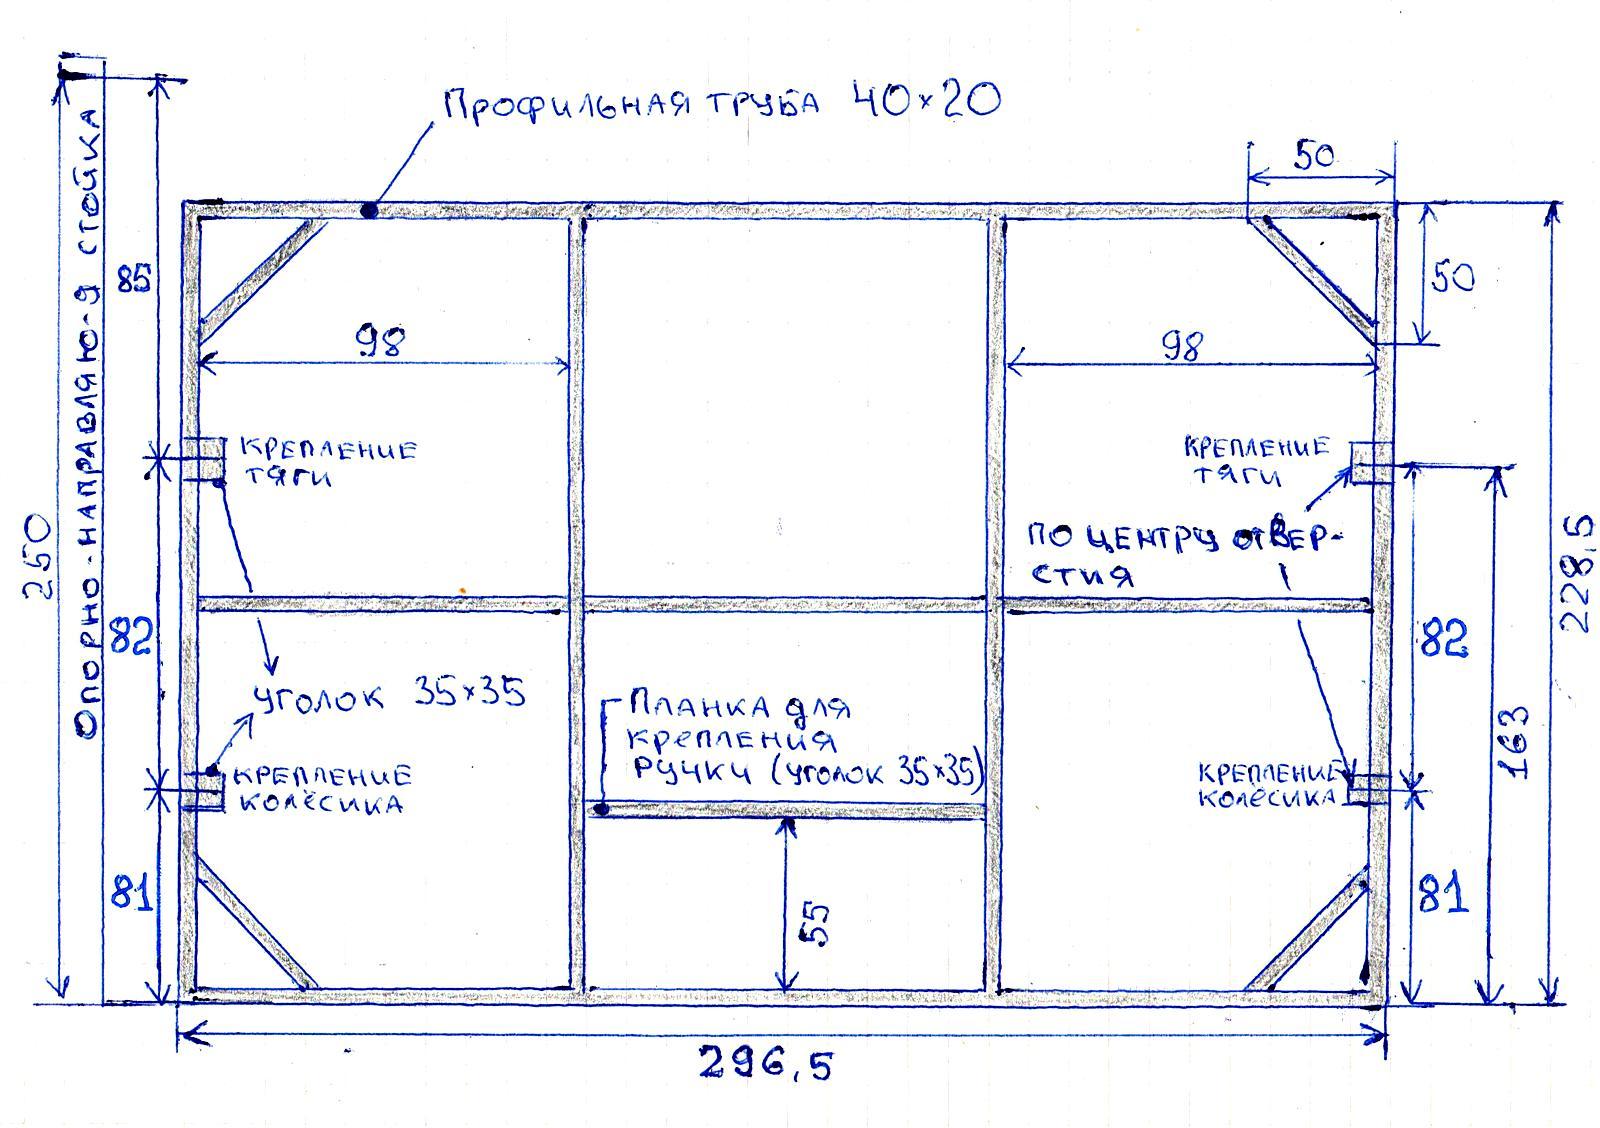 Профильная труба 40×20
50
50
Опорно-направляю-я стойка
85
98
98
Крепление
тяги
Крепление
тяги
по центру отвер-
стия
250
228,5
82
82
163
уголок 35×35
Планка для
крепления
ручки (уголок 35×35)
Крепление
колёсика
Крепление
колёсика
81
81
55
296,5